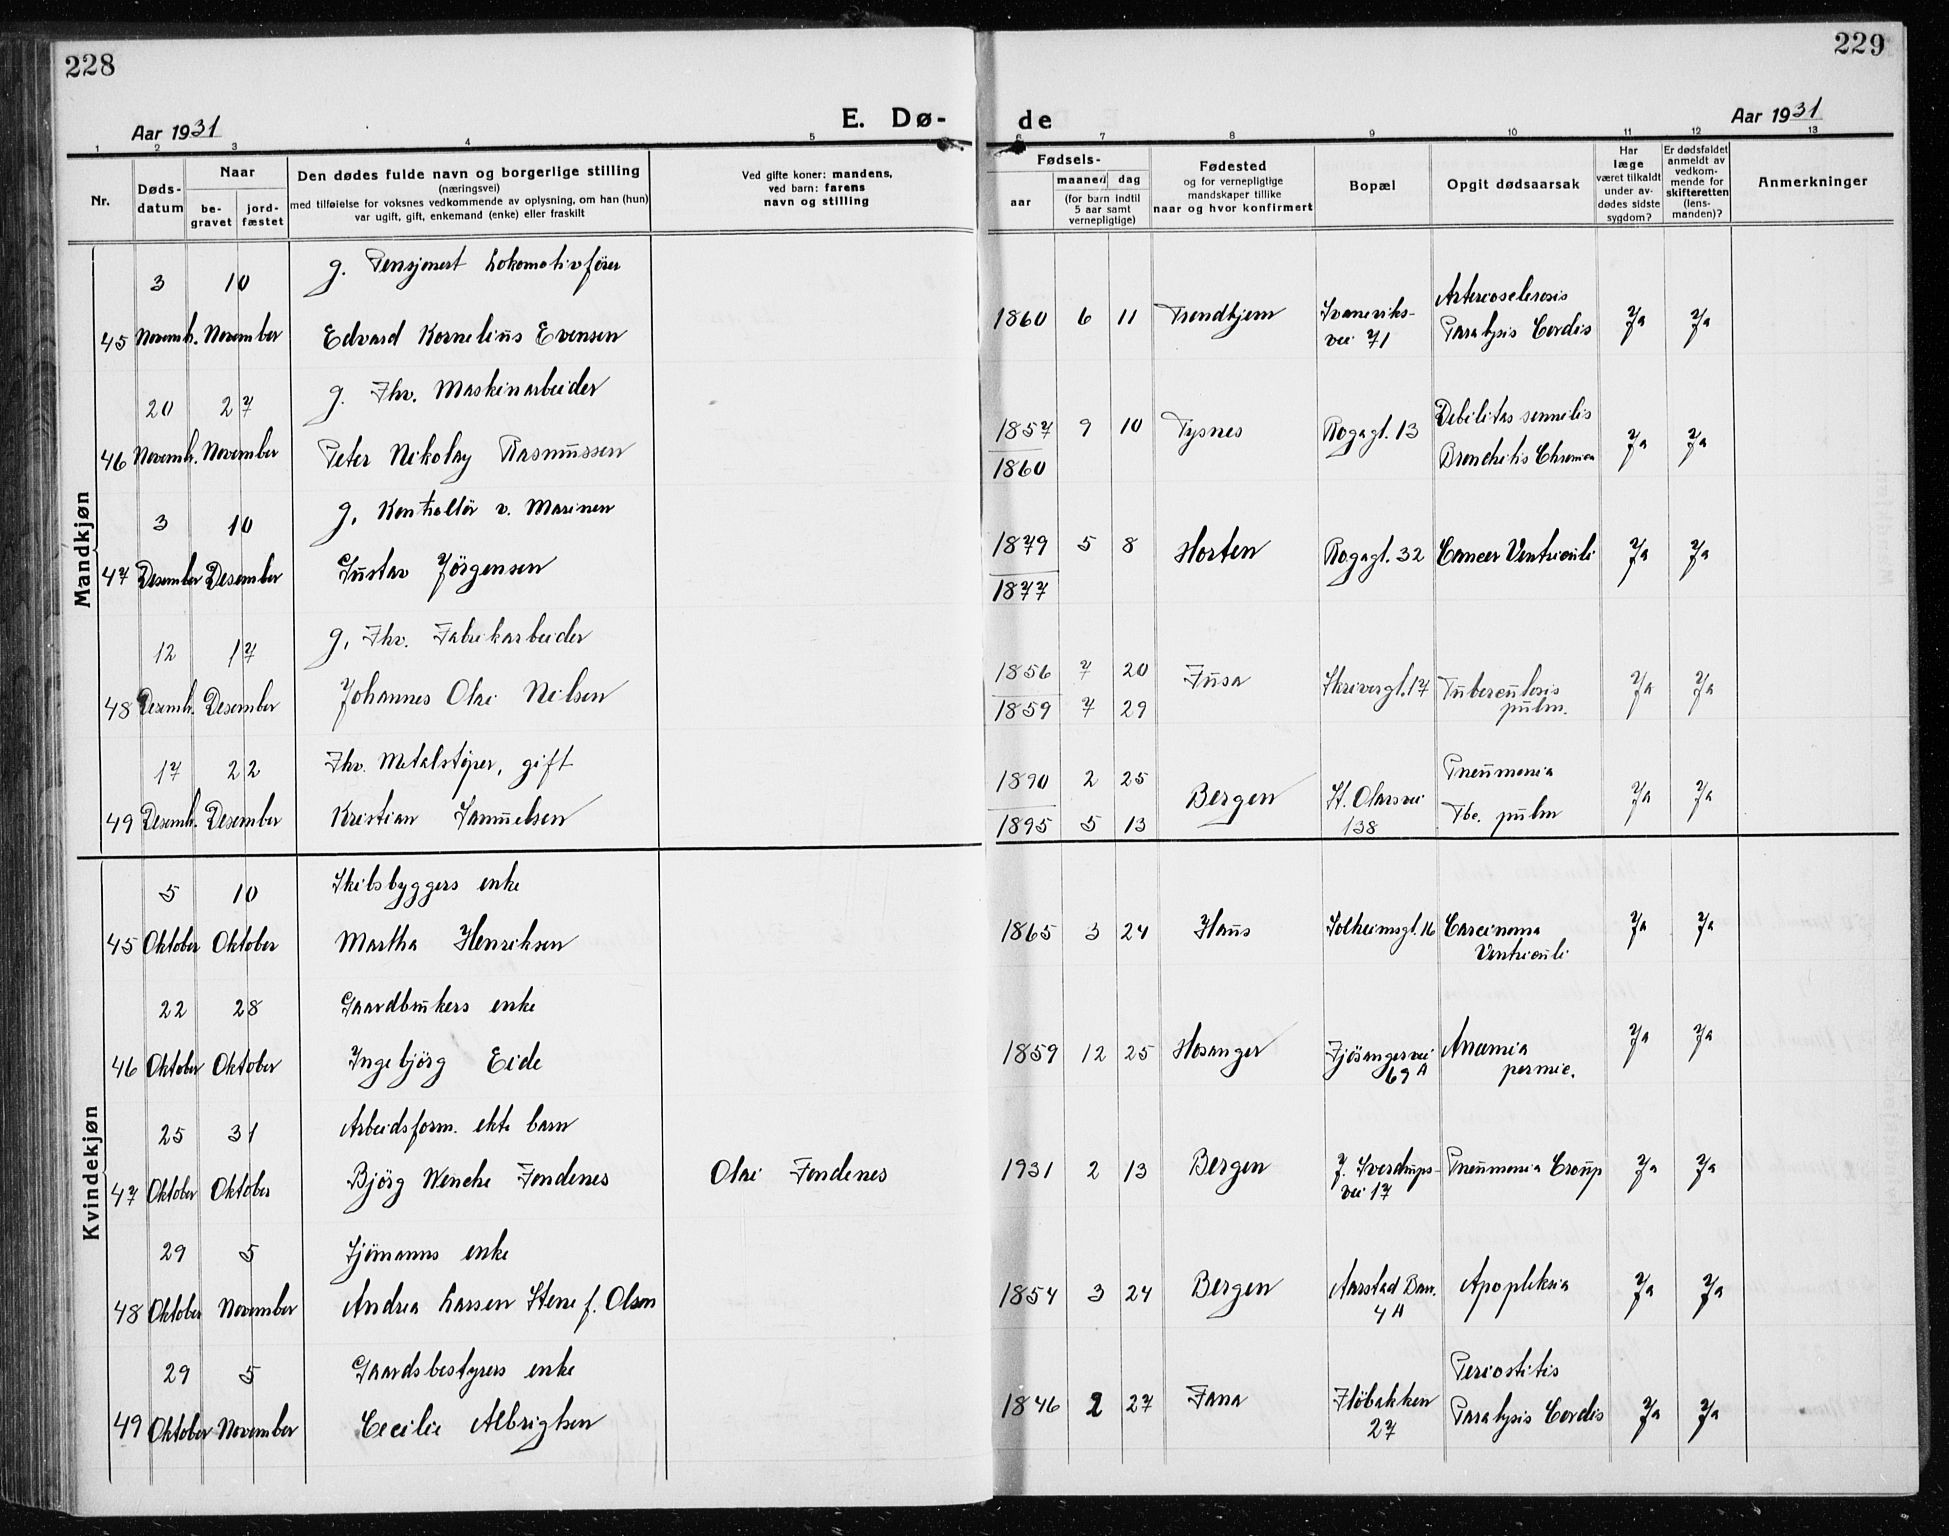 228
229
Aar 1931
E. Dø-
de
Aar 1931
1 2 3 4 5 6 7 8 9 10 11 12 13
Nr.
Døds-
datum
Naar
be-
gravet
jord-
fæstet
Den dødes fulde navn og borgerlige stilling
(næringsvei)
med tilføielse for voksnes vedkommende av oplysning, om han (hun)
var ugift, gift, enkemand (enke) eller fraskilt
Ved gifte koner: mandens,
ved barn: farens
navn og stilling
Fødsels-
aar
maaned
dag
(for barn indtil
5 aar samt
vernepligtige)
Fødested
og for vernepligtige
mandskaper tillike
naar og hvor konfirmert
Bopæl
Opgit dødsaarsak
Har
læge
været tilkaldt
under av-
dødes sidste
sygdom?
Er dødsfaldet
anmeldt av
vedkom-
mende for
skifteretten
(lens-
manden)?
Anmerkninger
Mandkjøn
3 10 g. Pensjonert Lokomotivfører
45 Novemb. November Edvard Kornelius Evensen
1860 6 11 Trondhjem Svaneviks-
vei 71
Arteriosclerosis
Paralysis Cordis
Ja Ja
20 27 g. Fhv. Maskinarbeider
46 Novemb. November Peter Nikolay Rasmussen
1857 9 10 Tysnes Rogagt. 13
1860
Debilitas sennilis
Bronchitis Chronica
Ja Ja
3 10 g. Kontrollør v. Marinen
47 Desember Desember Gustav Jörgensen
1879 5 8 Horten Rogagt. 32 Cancer Ventriculi Ja Ja
1877
12 17 g. Fhv. Fabrikarbeider
48 Desemb. Desember Johannes Olai Nilsen
1856 7 20 Fusa Skrivergt. 17 Tuberculosis
pulm.
Ja Ja
1859 7 29
17 22 Fhv. Metalstøper, gift
49 Desemb. Desember Kristian Samuelsen
1890 2 25 Bergen St. Olavsvei
138
1895 5 13
Pneumonia
Tbc. pulm
Ja Ja
Kvindekjøn
5 10 Skibsbyggers enke
45 Oktober Oktober Martha Henriksen
1865 3 24 Haus Solheimsgt. 16 Carcinoma
Ventriculi
Ja Ja
22 28 Gaardbrukers enke
46 Oktober Oktober Ingebjörg Eide
1859 12 25 Hosanger Fjösangervei
69 A
Anæmia
pernic.
Ja Ja
25 31 Arbeidsform. ekte barn
47 Oktober Oktober Bjørg Wenche Fondenes Olai Fondenes
1931 2 13 Bergen J. Sverdrups-
vei 17
Pneumonia Croup Ja Ja
29 5 Sjömanns enke
48 Oktober November Andrea Larsen Stene f. Olson
1854 3 24 Bergen Aarstad Ban.
4 A
Apopleksia Ja Ja
29 5 Gaardsbestyrers enke
49 Oktober November Cecilie Albrigtsen
1846 2 27 Fana Flöbakken
27
Periostitis
Paralysis Cordis
Ja Ja